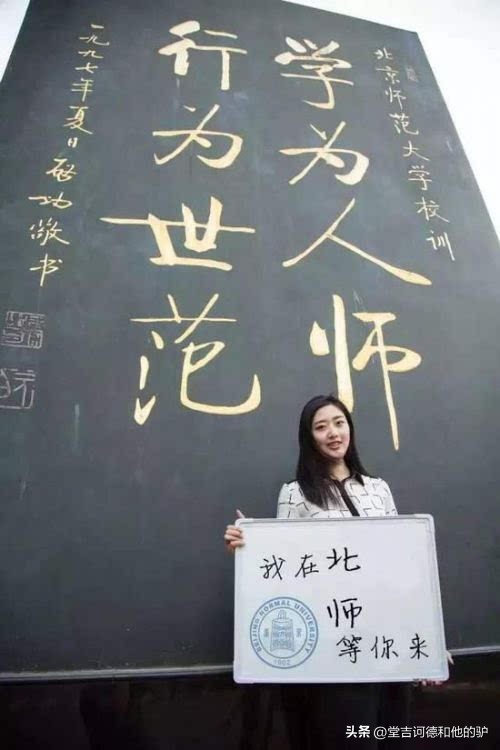 北京师范大学校训
学为人师
行为世范
一九九七年夏日启功敬书
我在北
师
等你来
BEIJING NORMAL UNIVERSITY
1902
头条 @堂吉诃德和他的驴